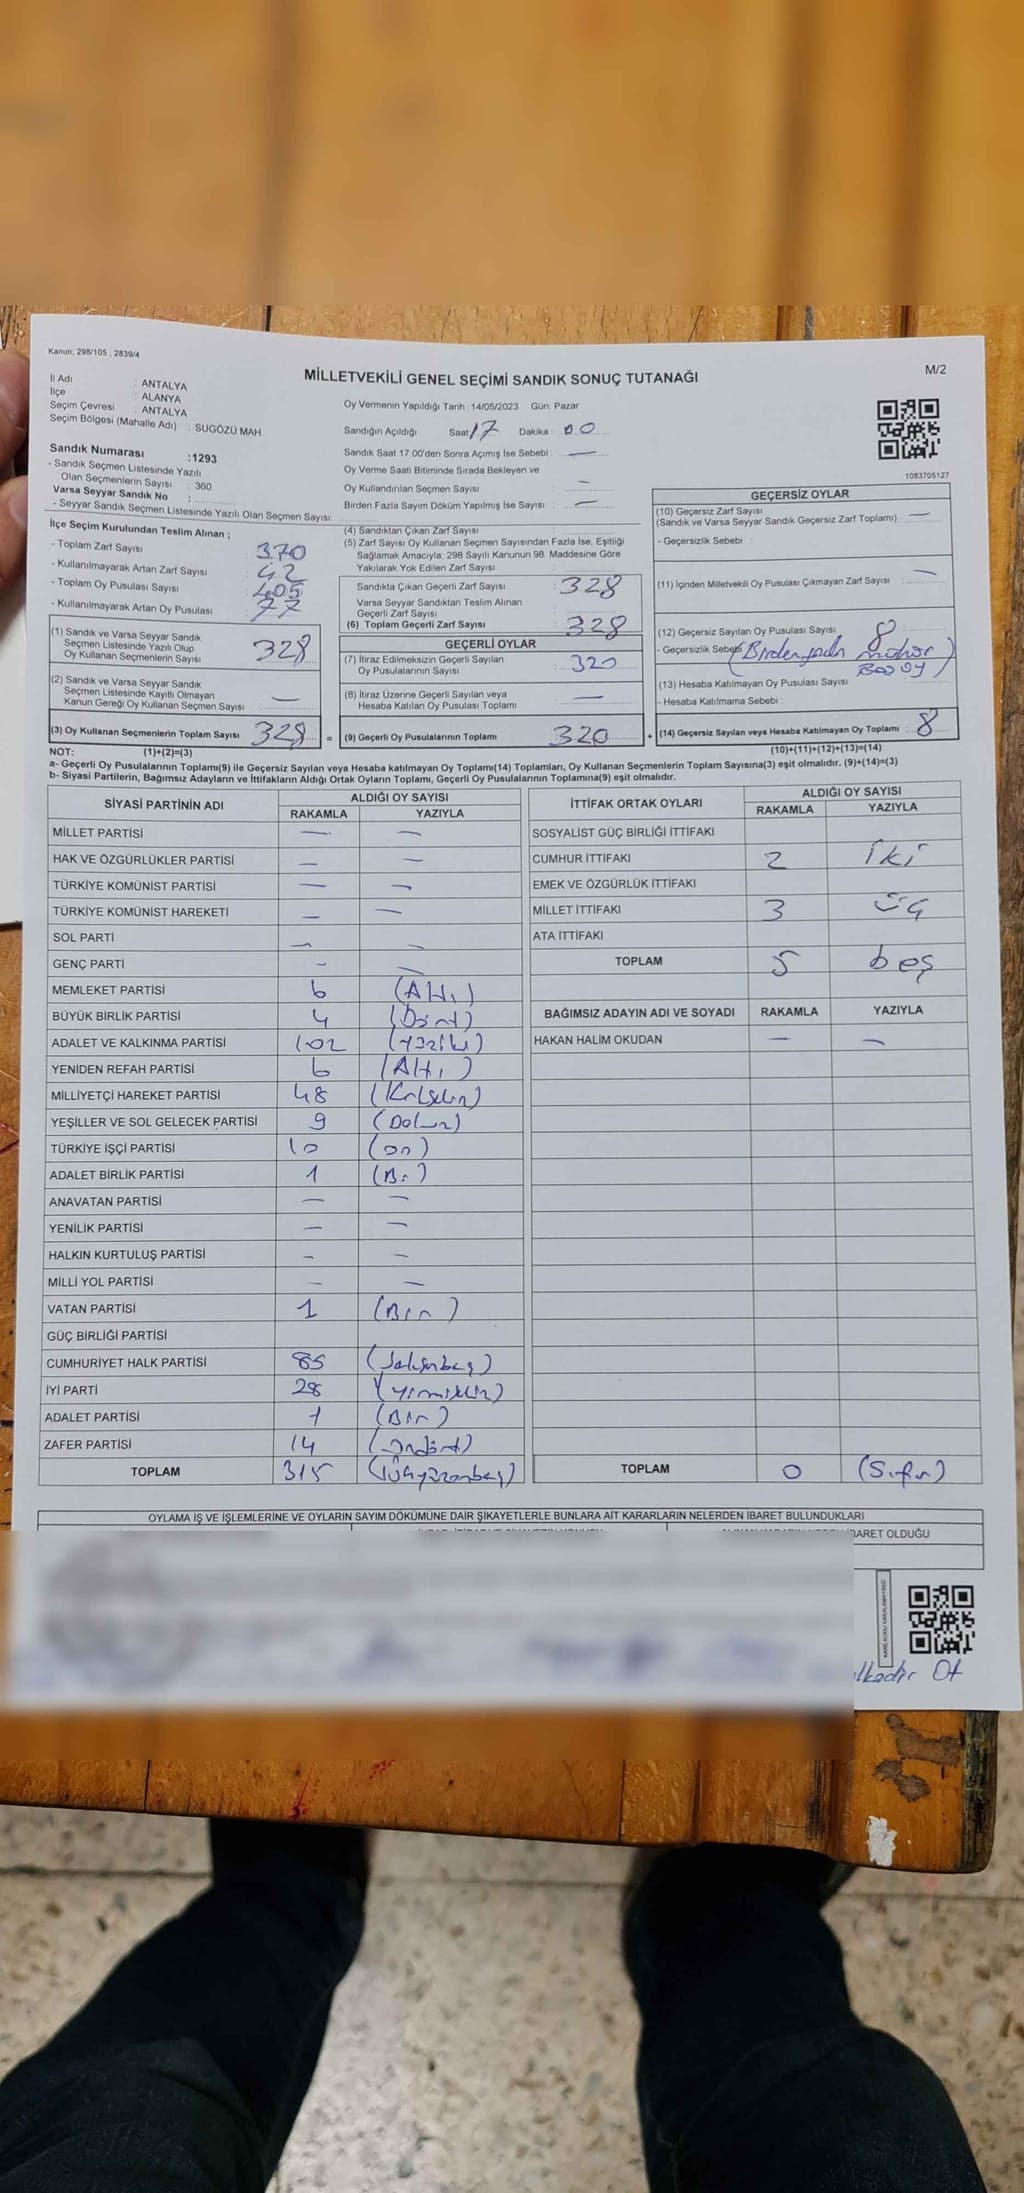 Kanun; 298/105 , 2839/4
M/2
MİLLETVEKİLİ GENEL SEÇİMİ SANDIK SONUÇ TUTANAĞI
İl Adı : ANTALYA
İlçe : ALANYA
Seçim Çevresi : ANTALYA
Seçim Bölgesi (Mahalle Adı) : SUGÖZÜ MAH.
Sandık Numarası :1293
- Sandık Seçmen Listesinde Yazılı
Olan Seçmenlerin Sayısı : 360
Varsa Seyyar Sandık No :
- Seyyar Sandık Seçmen Listesinde Yazılı Olan Seçmen Sayısı:
Oy Vermenin Yapıldığı Tarih : 14/05/2023 Gün: Pazar
Sandığın Açıldığı Saat 17 Dakika : 00
Sandık Saat 17:00'den Sonra Açımış İse Sebebi : —
Oy Verme Saati Bitiminde Sırada Bekleyen ve
Oy Kullandırılan Seçmen Sayısı : —
Birden Fazla Sayım Döküm Yapılmış İse Sayısı : —
1083705127
İlçe Seçim Kurulundan Teslim Alınan ;
- Toplam Zarf Sayısı : 370
- Kullanılmayarak Artan Zarf Sayısı : 42
- Toplam Oy Pusulası Sayısı : 405
- Kullanılmayarak Artan Oy Pusulası : 77
(1) Sandık ve Varsa Seyyar Sandık
Seçmen Listesinde Yazılı Olup
Oy Kullanan Seçmenlerin Sayısı : 328
(2) Sandık ve Varsa Seyyar Sandık
Seçmen Listesinde Kayıtlı Olmayan
Kanun Gereği Oy Kullanan Seçmen Sayısı : —
(3) Oy Kullanan Seçmenlerin Toplam Sayısı : 328 =
(4) Sandıktan Çıkan Zarf Sayısı :
(5) Zarf Sayısı Oy Kullanan Seçmen Sayısından Fazla İse, Eşitliği
Sağlamak Amacıyla; 298 Sayılı Kanunun 98. Maddesine Göre
Yakılarak Yok Edilen Zarf Sayısı :
Sandıkta Çıkan Geçerli Zarf Sayısı : 328
Varsa Seyyar Sandıktan Teslim Alınan
Geçerli Zarf Sayısı :
(6) Toplam Geçerli Zarf Sayısı : 328
GEÇERLİ OYLAR
(7) İtiraz Edilmeksizin Geçerli Sayılan
Oy Pusulalarının Sayısı : 320
(8) İtiraz Üzerine Geçerli Sayılan veya
Hesaba Katılan Oy Pusulası Toplamı : —
(9) Geçerli Oy Pusulalarının Toplamı : 320 +
GEÇERSİZ OYLAR
(10) Geçersiz Zarf Sayısı
(Sandık ve Varsa Seyyar Sandık Geçersiz Zarf Toplamı) : —
- Geçersizlik Sebebi :
(11) İçinden Milletvekili Oy Pusulası Çıkmayan Zarf Sayısı : —
(12) Geçersiz Sayılan Oy Pusulası Sayısı : 8
- Geçersizlik Sebebi
(13) Hesaba Katılmayan Oy Pusulası Sayısı :
- Hesaba Katılmama Sebebi :
(14) Geçersiz Sayılan veya Hesaba Katılmayan Oy Toplamı : 8
NOT: (1)+(2)=(3)
(10)+(11)+(12)+(13)=(14)
a- Geçerli Oy Pusulalarının Toplamı(9) ile Geçersiz Sayılan veya Hesaba katılmayan Oy Toplamı(14) Toplamları, Oy Kullanan Seçmenlerin Toplam Sayısına(3) eşit olmalıdır. (9)+(14)=(3)
b- Siyasi Partilerin, Bağımsız Adayların ve İttifakların Aldığı Ortak Oyların Toplamı, Geçerli Oy Pusulalarının Toplamına(9) eşit olmalıdır.
SİYASİ PARTİNİN ADI ALDIĞI OY SAYISI
RAKAMLA YAZIYLA
MİLLET PARTİSİ — —
HAK VE ÖZGÜRLÜKLER PARTİSİ — —
TÜRKİYE KOMÜNİST PARTİSİ — —
TÜRKİYE KOMÜNİST HAREKETİ — —
SOL PARTİ — —
GENÇ PARTİ — —
MEMLEKET PARTİSİ 6 (Altı)
BÜYÜK BİRLİK PARTİSİ 4 (Dört)
ADALET VE KALKINMA PARTİSİ 102 (Yüziki)
YENİDEN REFAH PARTİSİ 6 (Altı)
MİLLİYETÇİ HAREKET PARTİSİ 48 (Kırksekiz)
YEŞİLLER VE SOL GELECEK PARTİSİ 9 (Dokuz)
TÜRKİYE İŞÇİ PARTİSİ 10 (on)
ADALET BİRLİK PARTİSİ 1 (Bir)
ANAVATAN PARTİSİ — —
YENİLİK PARTİSİ — —
HALKIN KURTULUŞ PARTİSİ — —
MİLLİ YOL PARTİSİ — —
VATAN PARTİSİ 1 (Bir)
GÜÇ BİRLİĞİ PARTİSİ
CUMHURİYET HALK PARTİSİ 85 (Seksenbeş)
İYİ PARTİ 28 (Yirmisekiz)
ADALET PARTİSİ 1 (Bir)
ZAFER PARTİSİ 14 (Ondört)
TOPLAM 315 (Üçyüzonbeş)
İTTİFAK ORTAK OYLARI ALDIĞI OY SAYISI
RAKAMLA YAZIYLA
SOSYALİST GÜÇ BİRLİĞİ İTTİFAKI
CUMHUR İTTİFAKI 2 İki
EMEK VE ÖZGÜRLÜK İTTİFAKI
MİLLET İTTİFAKI 3 üç
ATA İTTİFAKI
TOPLAM 5 beş
BAĞIMSIZ ADAYIN ADI VE SOYADI RAKAMLA YAZIYLA
HAKAN HALİM OKUDAN — —
TOPLAM 0 (Sıfır)
OYLAMA İŞ VE İŞLEMLERİNE VE OYLARIN SAYIM DÖKÜMÜNE DAİR ŞİKAYETLERLE BUNLARA AİT KARARLARIN NELERDEN İBARET BULUNDUKLARI
İBARET OLDUĞU